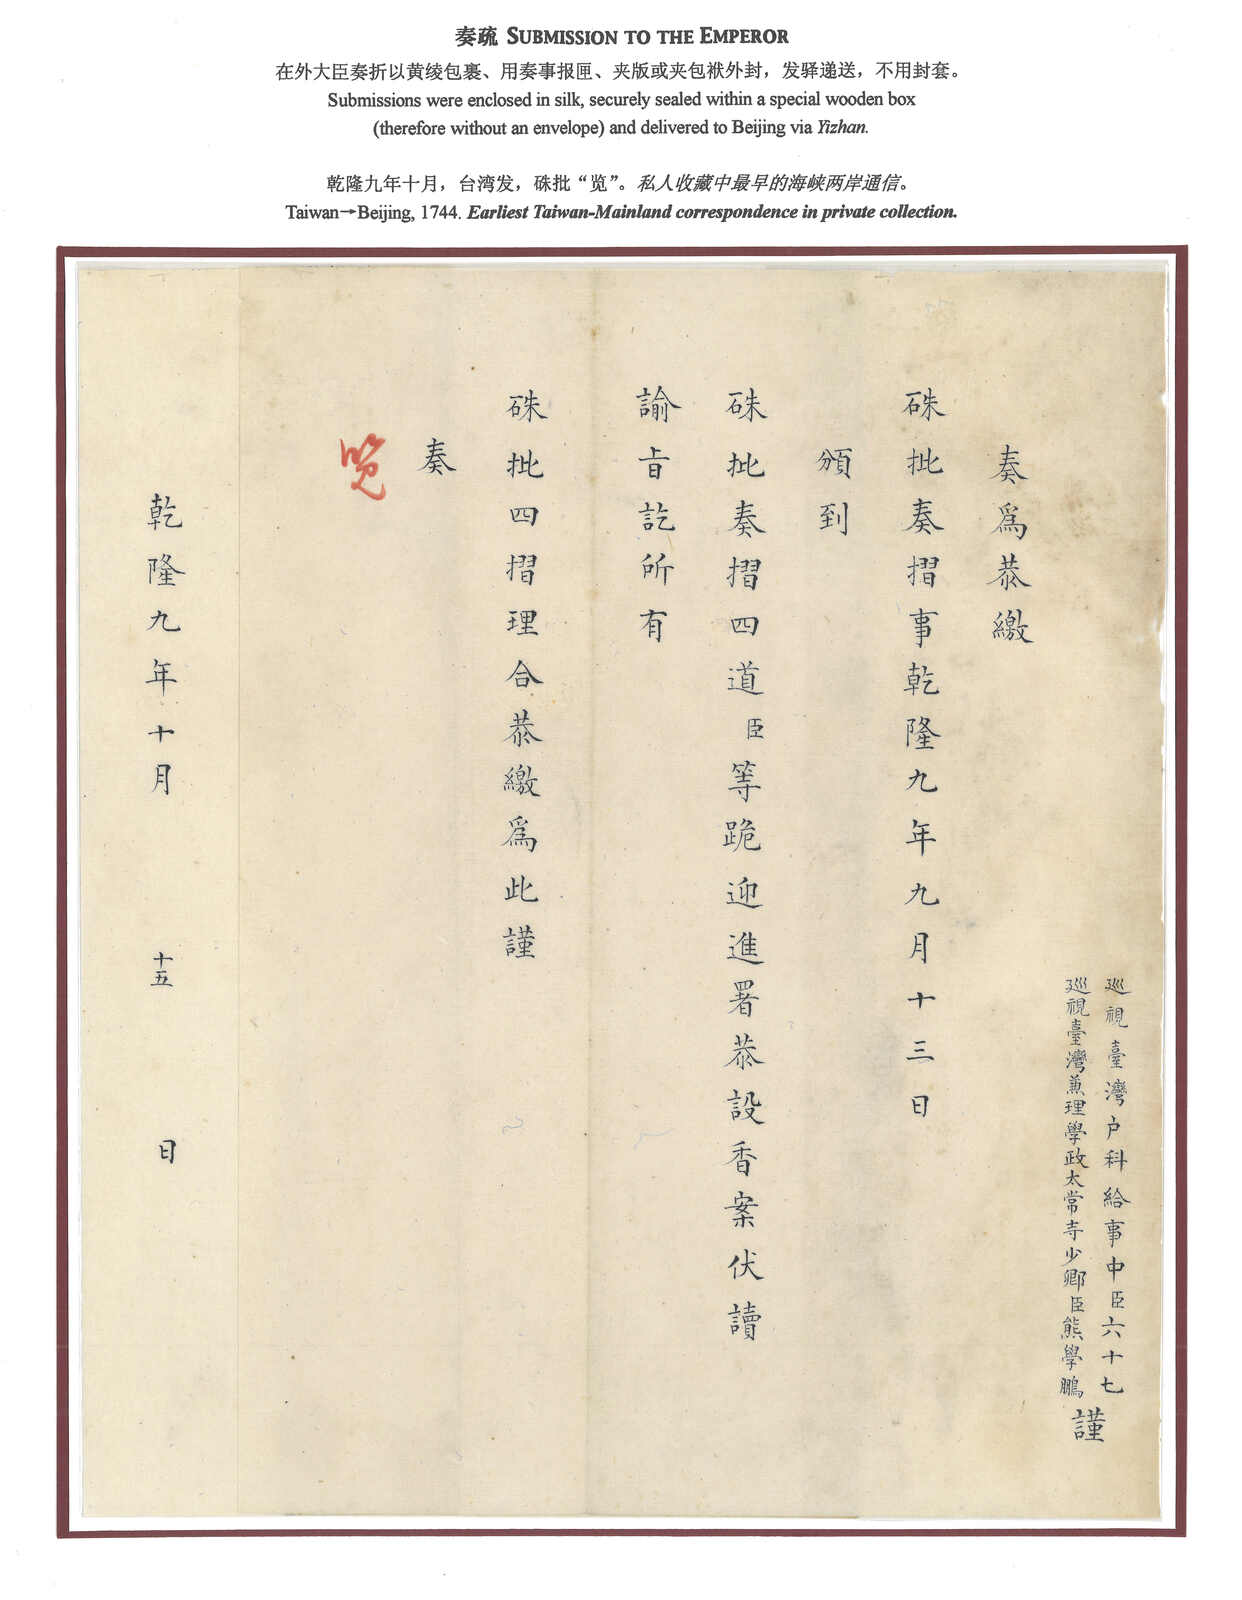 奏疏 SUBMISSION TO THE EMPEROR
在外大臣奏折以黄绫包裹、用奏事报匣、夹版或夹包袱外封，发驿递送，不用封套。
Submissions were enclosed in silk, securely sealed within a special wooden box
(therefore without an envelope) and delivered to Beijing via Yizhan.
乾隆九年十月，台湾发，硃批“览”。私人收藏中最早的海峡两岸通信。
Taiwan→Beijing, 1744. Earliest Taiwan-Mainland correspondence in private collection.
巡視臺灣户科給事中臣六十七
巡視臺灣兼理學政太常寺少卿臣熊學鵬
謹
奏為恭繳
硃批奏摺事乾隆九年九月十三日
頒到
硃批奏摺四道臣等跪迎進署恭設香案伏讀
諭旨訖所有
硃批四摺理合恭繳為此謹
奏
览
乾隆九年十月十五日